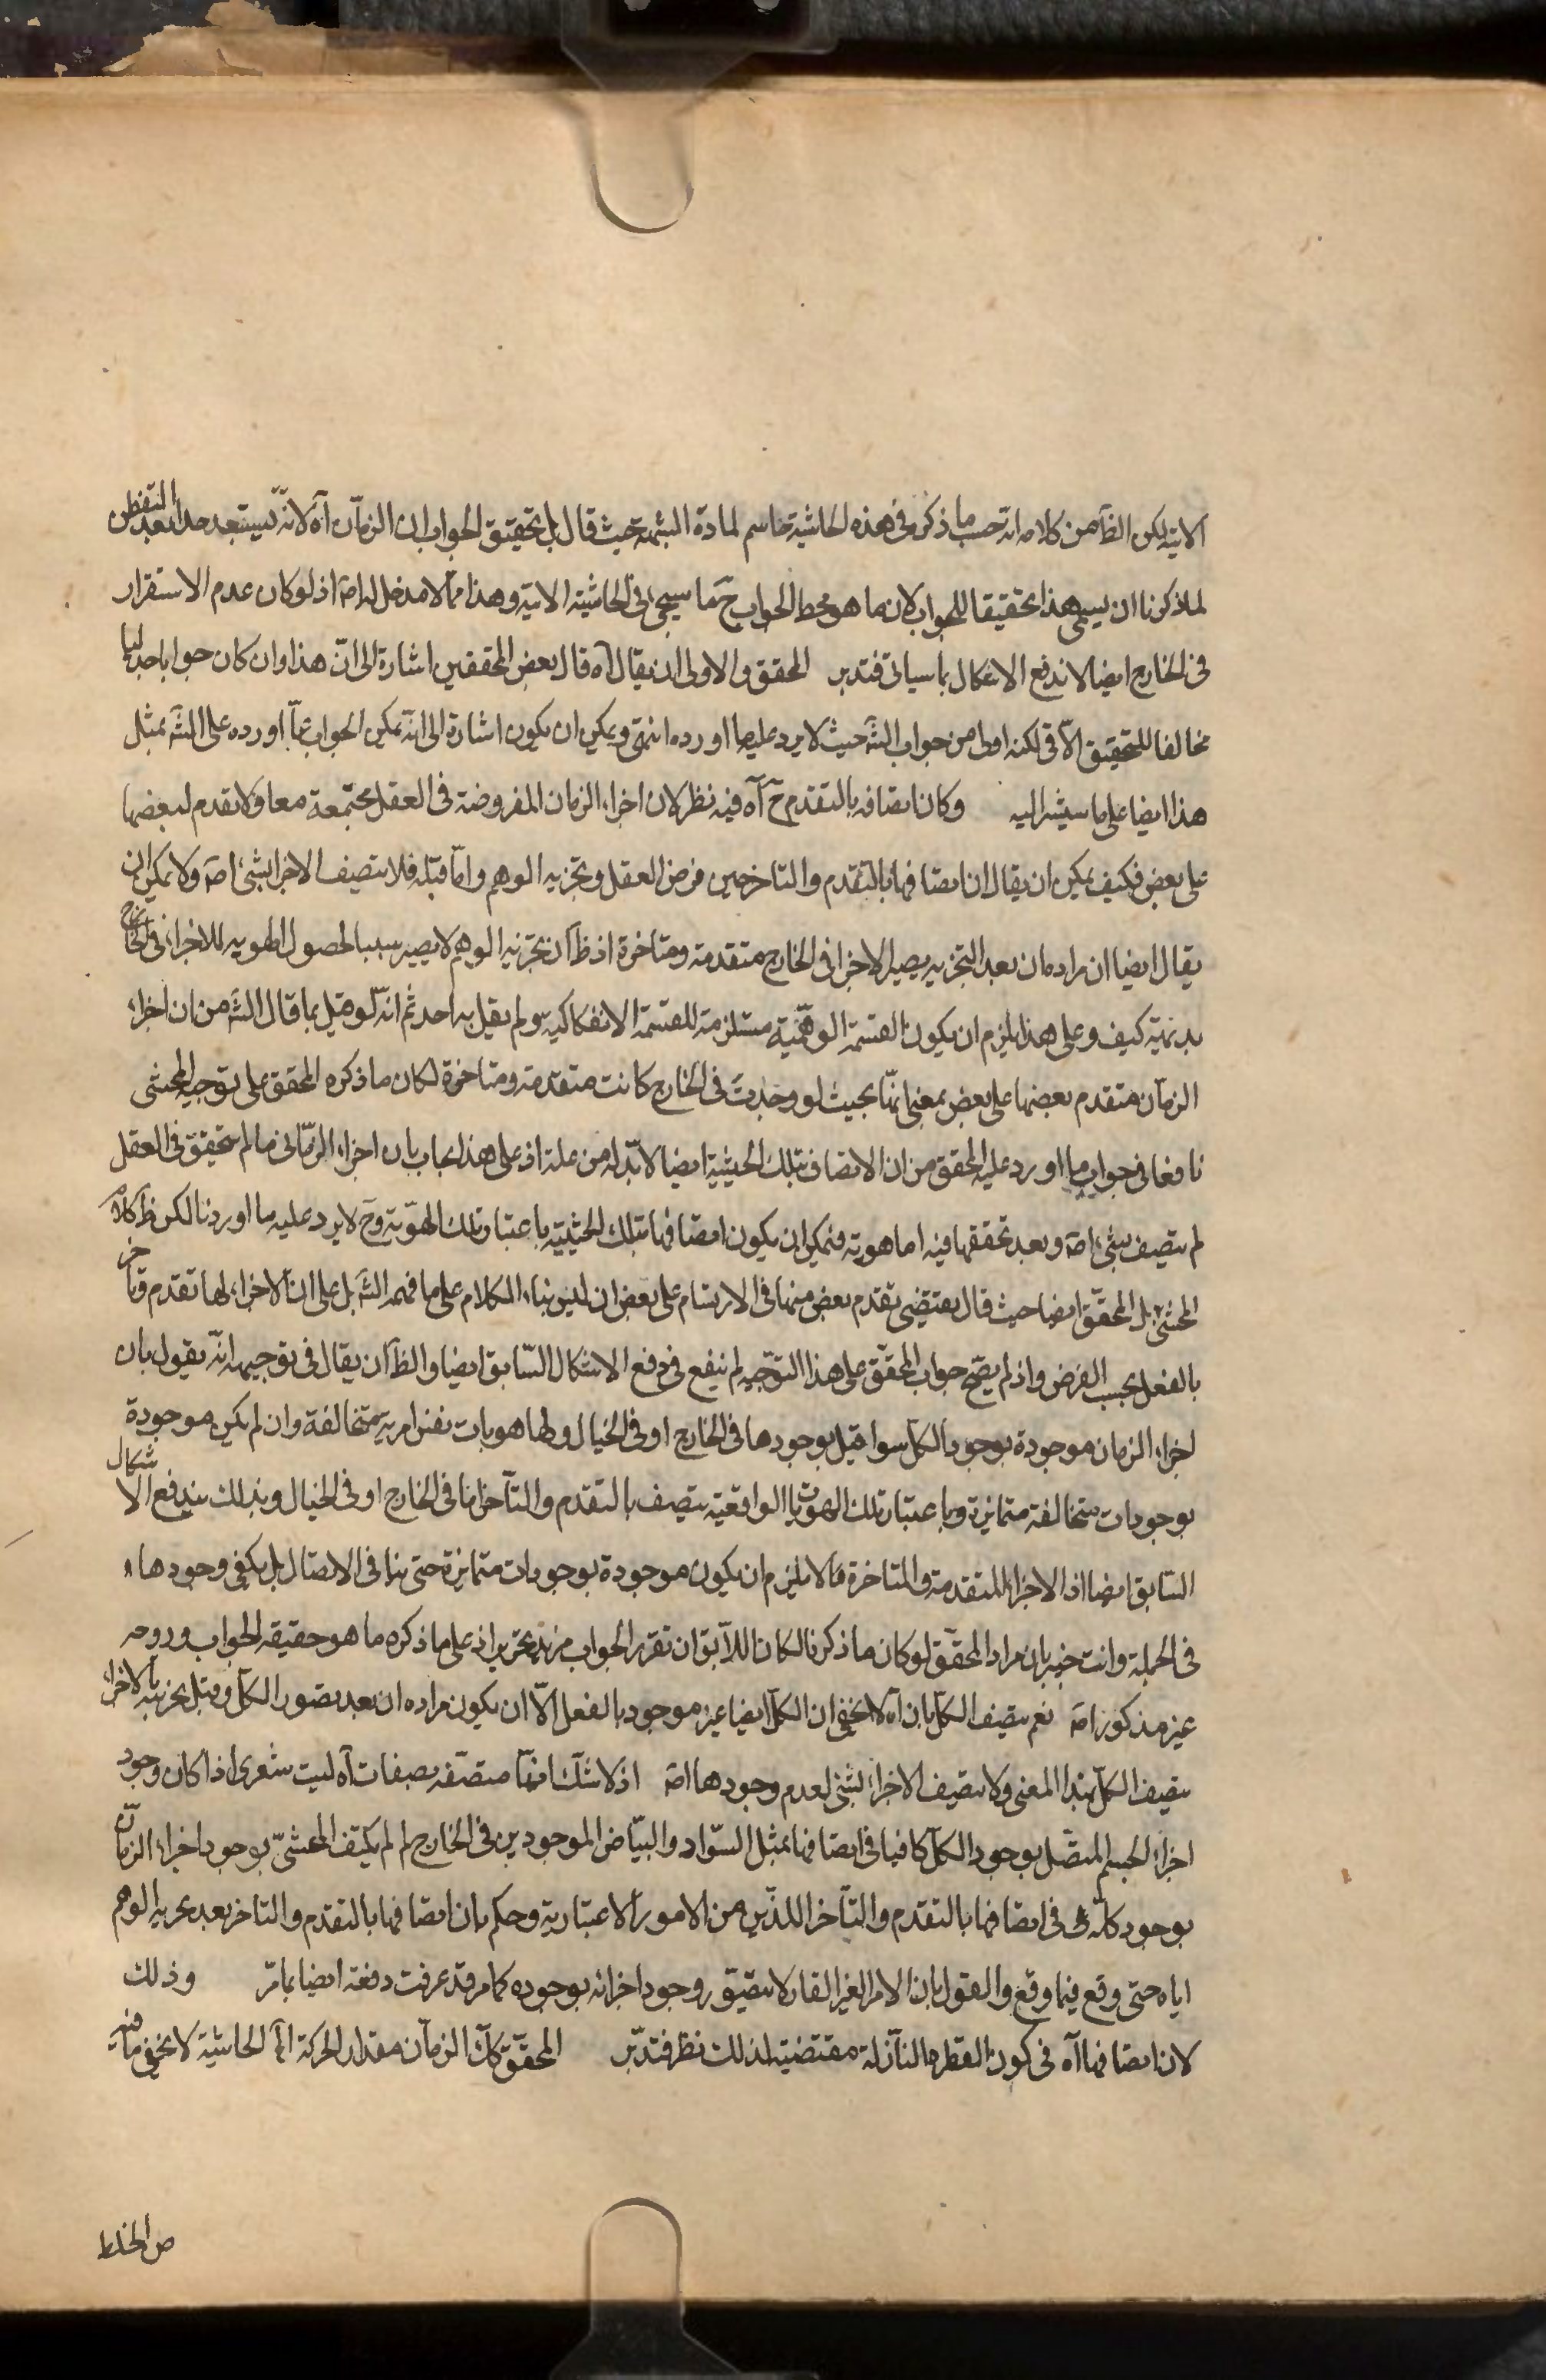 الاتية لكن الظآهر من كلامه انه حسب ما ذكره فى هذه الحاشية حاسم لمادة الشبهة حيث قال بل تحقيق الجواب ان الزمان آه لانه يستبعد جدا بعد التفطن
لما ذكرنا ان يسمى هذا تحقيقا للجواب لان ما هو محط الجواب ح ما سيجئ فى الحاشية الاتية وهذا مما لا مدخل له اصة اذ لو كان عدم الاستقرار
فى الخارج ايضا لاندفع الاشكال بما سياتى فتدبر المحقق والاولى ان يقال آه قال بعض المحققين اشارة الى ان هذا وان كان جوابا جدليا
مخالفا للتحقيق الآتى لكنه اولى من جواب الشه حيث لا يرد عليه ما اورده انتهى ويمكن ان يكون اشارة الى انه يمكن الجواب عما اورده على الشه بمثل
هذا ايضا على ما سيشر اليه وكان اتصافه بالتقدم ح آه فيه نظر لان اجزاء الزمان المفروضة فى العقل مجتمعة معا ولا تقدم لبعضها
على بعض فكيف يمكن ان يقال ان اتصافها بالتقدم والتاخر حين فرض العقل وتجزيه الوهم واما قبله فلا يتصف الاجزا بشئ اصة ولا يمكن ان
يقال ايضا ان مراده ان بعد التجزيه يصير الاجزا فى الخارج متقدمة ومتاخرة اذ ظآ ان تجزيه الوهم لا يصير سببا لحصول الهويه للاجزاء فى الخارج
بديهية كيف وعلى هذا يلزم ان يكون القسمة الوهمية مستلزمة للقسمة الانفكاكيه ولم يقل به احد ثم انه لو قيل بما قال الشه من ان اجزاء
الزمان متقدم بعضها على بعض بمعنى انها بحيث لو وجدت فى الخارج كانت متقدمة ومتاخرة لكان ما ذكره المحقق على توجيه المحشى
نافعا فى جواب ما اورد عليه المحقق من ان الاتصاف بتلك الحيثية ايضا لابد له من علة اذ على هذا يجاب بان اجزاء الزمان ما لم يتحقق فى العقل
لم يتصف بشئ اصة وبعد تحققها فيه اما هويته فيمكن ان يكون اتصافها بتلك الحيثية باعتبار تلك الهوية وح لا يرد عليه ما اوردنا لكن ظ كلام
المحشى بل المحقق ايضا حيث قال يقتضى تقدم بعض منها فى الارتسام على بعض ان ليس بناء الكلام على ما فهمه الشه بل على ان الاجزاء لها تقدم وتأخر
بالفعل بحسب الفرض واذ لم يصح جواب المحقق على هذا التوجيه لم ينفع فى دفع الاشكال السابق ايضا والظآ ان يقال فى توجيهه انه يقول بان
اجزاء الزمان موجودة بوجود الكل سوا قيل بوجودها فى الخارج او فى الخيال ولها هويات نفس امرية متخالفة وان لم يكن موجودة
بوجودات متخالفة متمايزة وباعتبار تلك الهويات الواقعية يتصف بالتقدم والتآخر اما فى الخارج او فى الخيال وبذلك يندفع الاشكال
السابق ايضا اذ الاجزا المتقدمة والمتاخرة لا يلزم ان يكون موجودة بوجودات متمايزة حتى ينافى الاتصال بل يكفى وجودها
فى الجملة وانت خبير بان مراد المحقق لو كان ما ذكرنا لكان اللآيق ان تقرير الجواب مزيد تحرير اذ على ما ذكره ما هو حقيقة الجواب وروحه
غير مذكور اصة نعم يتصف الكل بان آه لا يخفى ان الكل ايضا غير موجود بالفعل الآ ان يكون مراده ان بعد تصور الكل وقبل تجزيته بالاجزاء
يتصف الكل بهذا المعنى ولا يتصف الاجزاء بشئ لعدم وجودها اصة اذ لا شك انها متصفة بصفات آه ليت شعرى اذا كان وجود
اجزاء الجسم المتصل بوجود الكل كافيا فى اتصافها بمثل السواد والبياض الموجودين فى الخارج لم لم يكتف المحشى بوجود اجزاء الزمان
بوجود كله فى اتصافها بالتقدم والتآخر اللذين من الامور الاعتبارية وحكم بان اتصافها بالتقدم والتاخر بعد تجزيه الوهم
اياه حتى وقع فيما وقع والقول بان الامر الغير القار لا يتصور وجود اجزائه بوجوده كما مر قد عرفت دفعه ايضا بما مر وذلك
لان اتصافها آه فى كون القطره النازلة مقتضية لذلك نظر فتدبر المحقق كآن الزمان مقدار الحركة الى الحاشية لا يخفى ما فيه